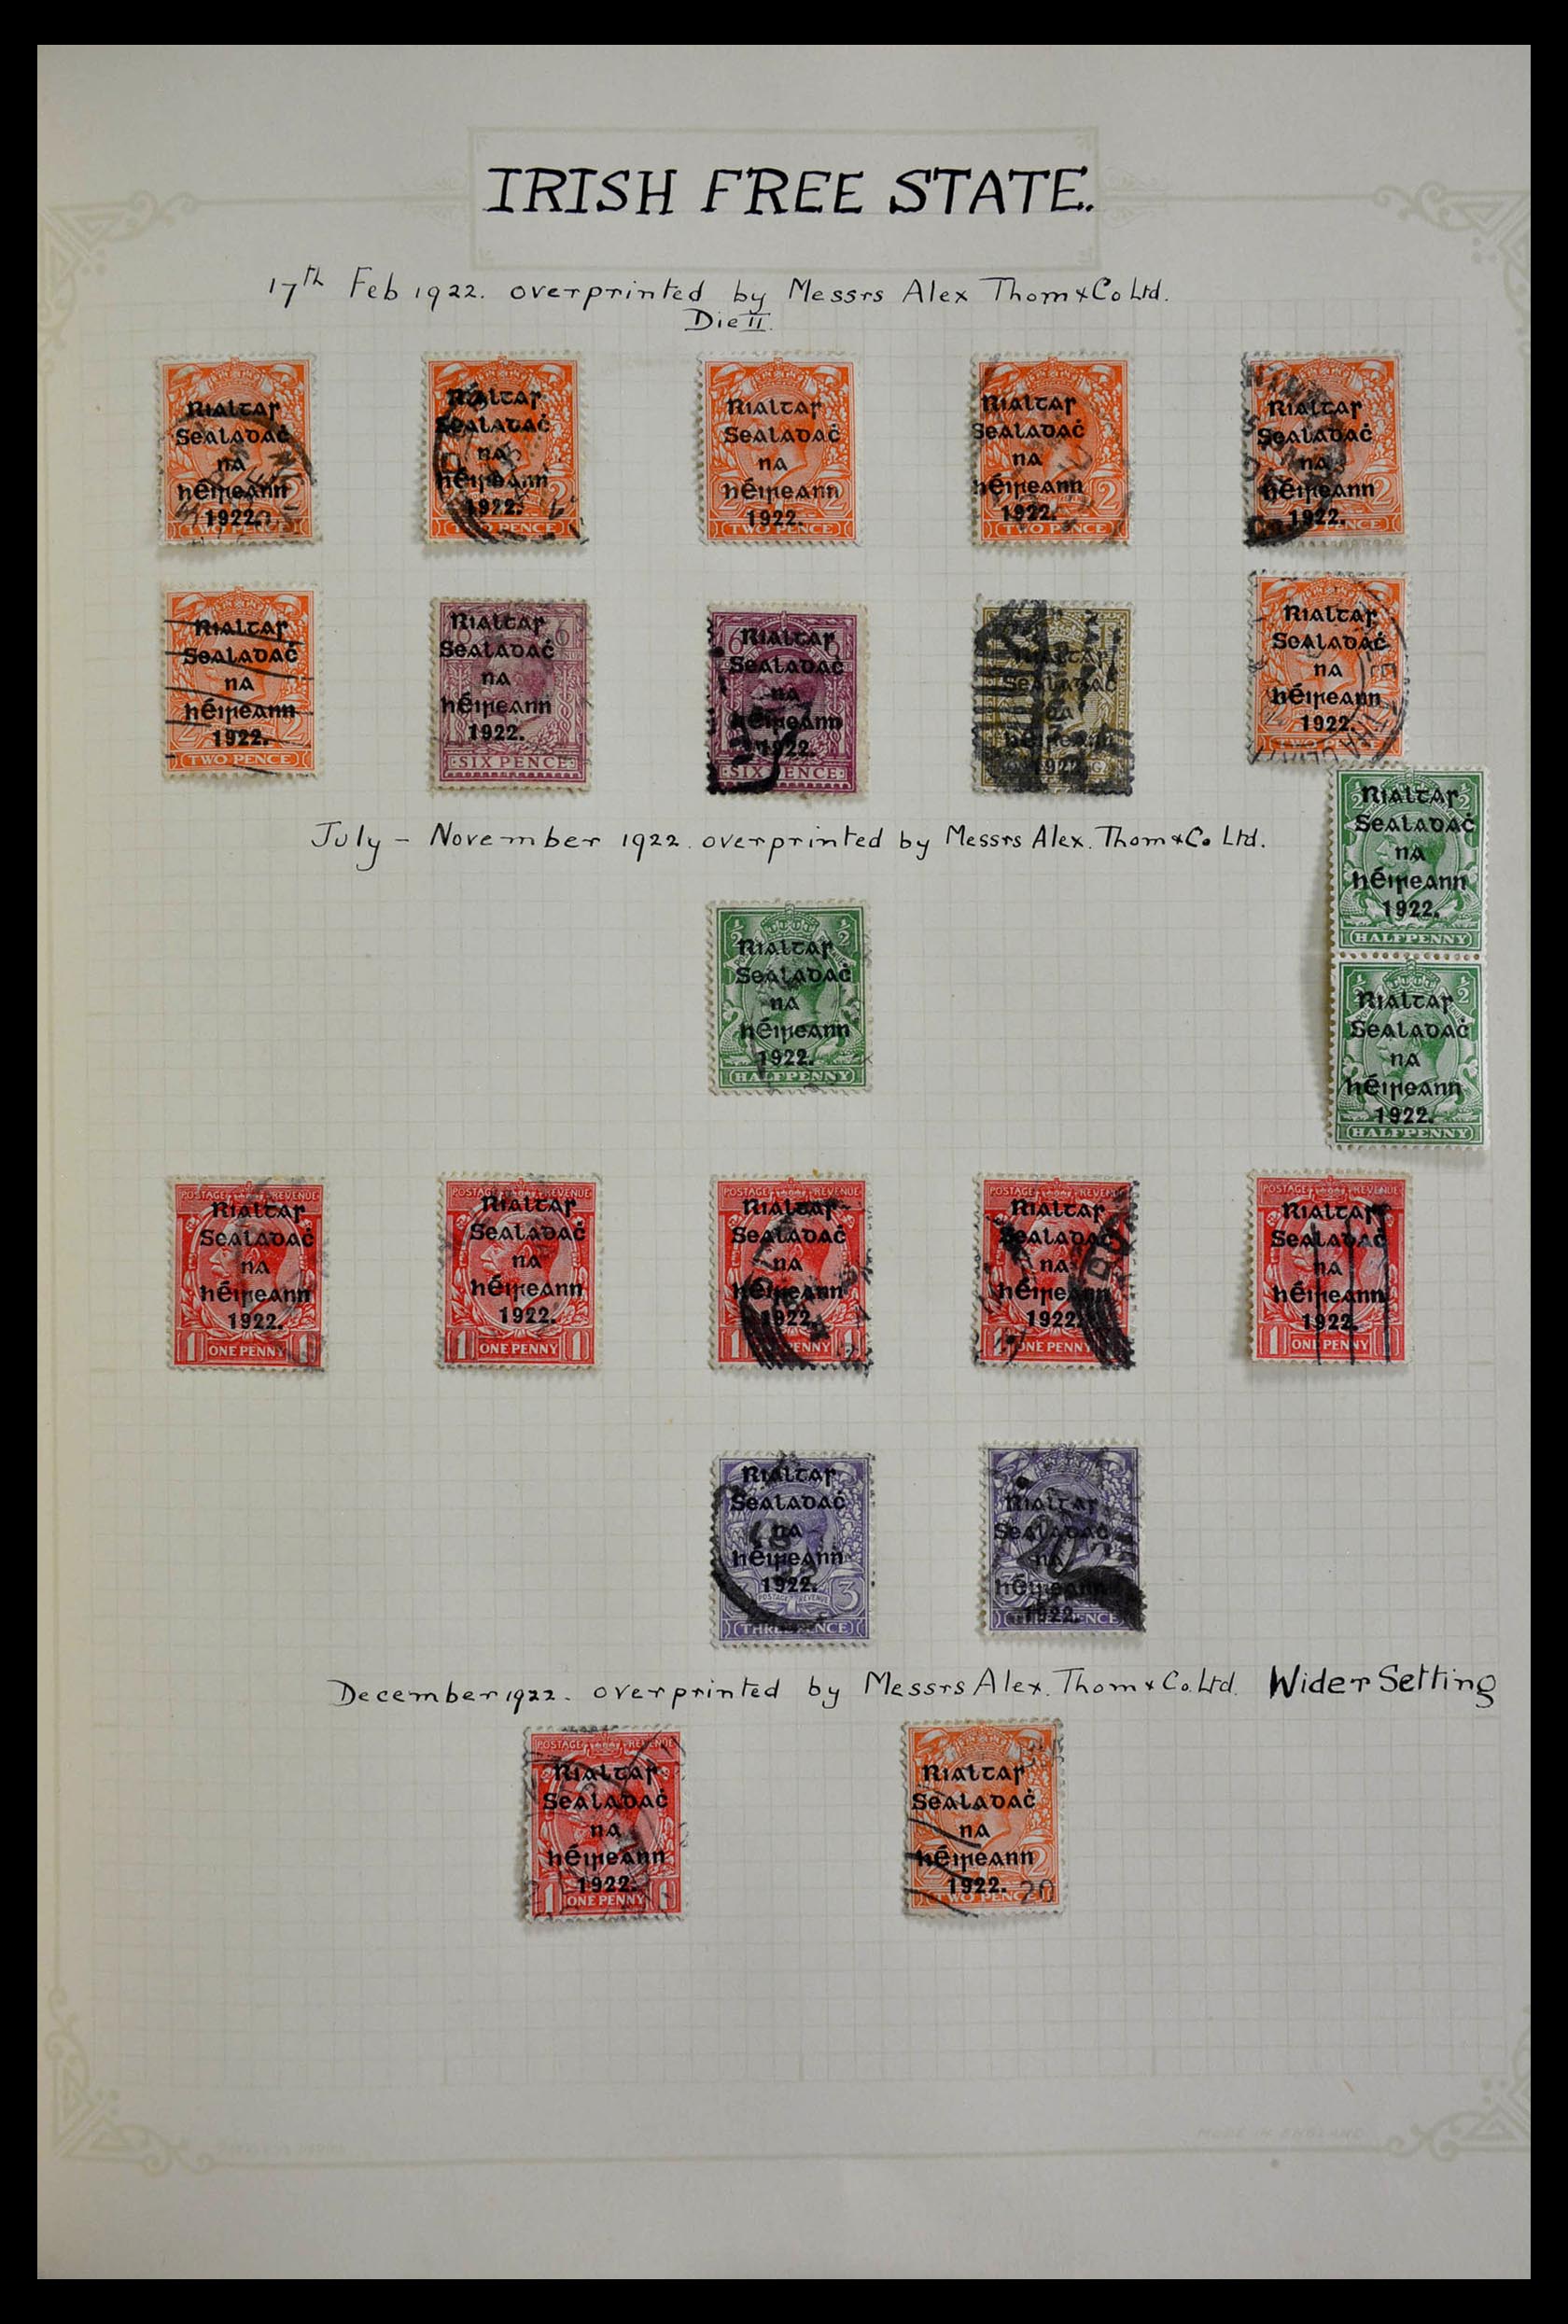 IRISH FREE STATE.
17th Feb 1922. overprinted by Messrs Alex Thom & Co Ltd.
Die II.
Rialtas
Sealadaċ
na
hÉireann
1922.
TWO PENCE
Rialtas
Sealadaċ
na
hÉireann
1922.
TWO PENCE
Rialtas
Sealadaċ
na
hÉireann
1922.
TWO PENCE
Rialtas
Sealadaċ
na
hÉireann
1922.
TWO PENCE
Rialtas
Sealadaċ
na
hÉireann
1922.
TWO PENCE
Rialtas
Sealadaċ
na
hÉireann
1922.
TWO PENCE
Rialtas
Sealadaċ
na
hÉireann
1922.
SIX PENCE
Rialtas
Sealadaċ
na
hÉireann
1922.
SIX PENCE
Rialtas
Sealadaċ
na
hÉireann
1922.
Rialtas
Sealadaċ
na
hÉireann
1922.
July – November 1922. overprinted by Messrs Alex. Thom & Co Ltd.
Rialtas
Sealadaċ
na
hÉireann
1922.
HALFPENNY
Rialtas
Sealadaċ
na
hÉireann
1922.
HALFPENNY
Rialtas
Sealadaċ
na
hÉireann
1922.
HALFPENNY
POSTAGE REVENUE
Rialtas
Sealadaċ
na
hÉireann
1922.
1 ONE PENNY 1
POSTAGE REVENUE
Rialtas
Sealadaċ
na
hÉireann
1922.
1 ONE PENNY 1
POSTAGE REVENUE
Rialtas
Sealadaċ
na
hÉireann
1922.
1 ONE PENNY 1
POSTAGE REVENUE
Rialtas
Sealadaċ
na
hÉireann
1922.
1 ONE PENNY
POSTAGE REVENUE
Rialtas
Sealadaċ
na
hÉireann
1922.
1 ONE PENNY 1
Rialtas
Sealadaċ
na
hÉireann
1922.
POSTAGE REVENUE 3
THREE PENCE
Rialtas
Sealadaċ
na
hÉireann
1922.
THREE PENCE
December 1922. overprinted by Messrs Alex. Thom & Co. Ltd. Wider Setting
POSTAGE REVENUE
Rialtas
Sealadaċ
na
hÉireann
1922.
1 ONE PENNY 1
Rialtas
Sealadaċ
na
hÉireann 2
1922. 20
TWO PENCE
MADE IN ENGLAND